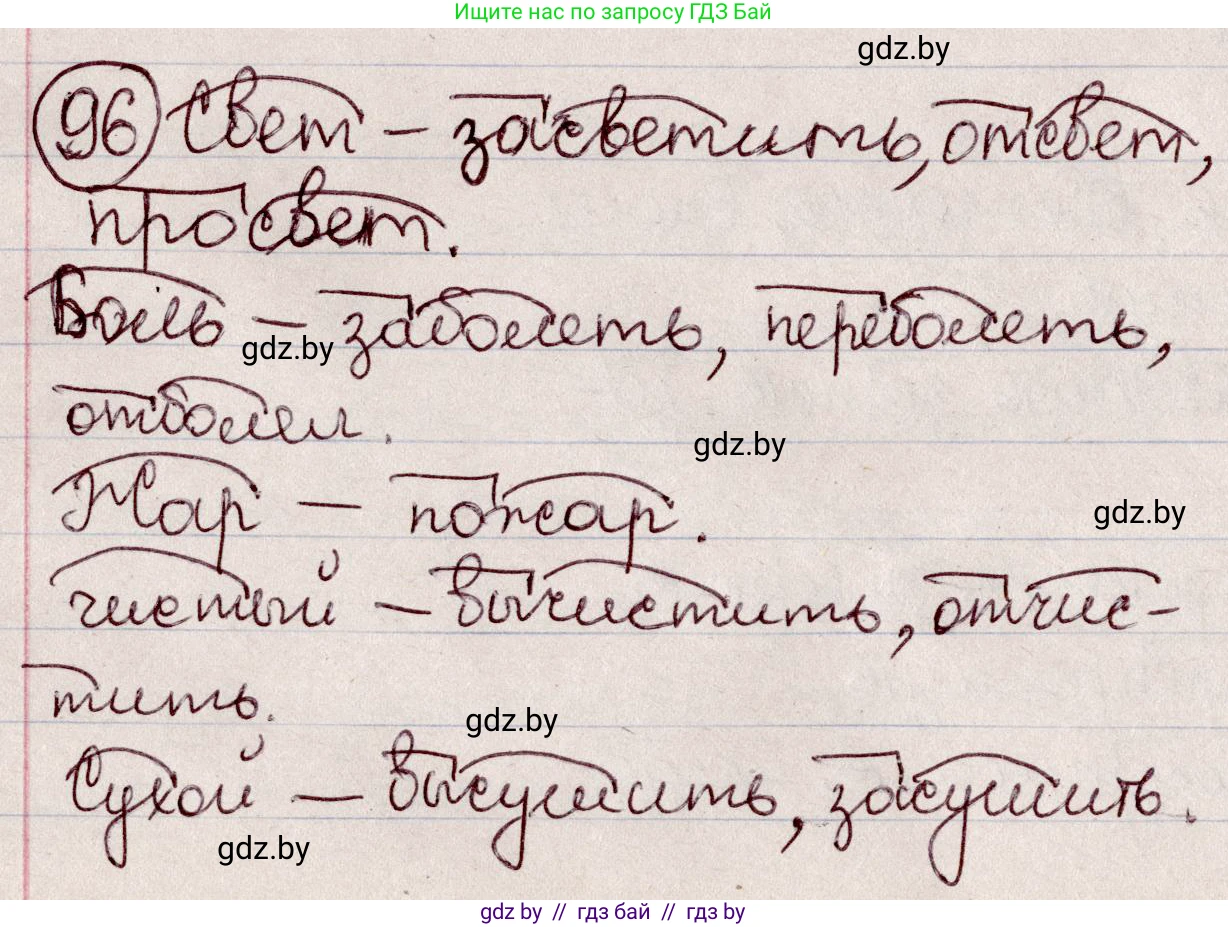 Ищите нас по запросу ГДЗ Бай
gdz.by
96 Свет – засветить, отсвет,
просвет.
Боль – заболеть, переболеть,
gdz.by
отболел.
gdz.by
Жар – пожар.
gdz.by
чистый – вычистить, отчис-
тить.
gdz.by
Сухой – высушить, засушить.
gdz.by
gdz by // гдз бай // гдз by